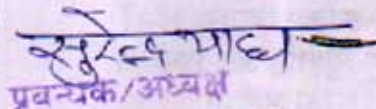 सुरेन्द्र याद्य
प्रबन्धक/अध्यक्ष